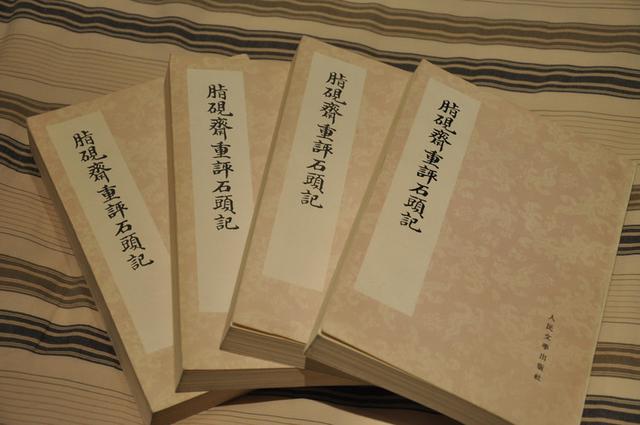 脂硯齋重評石頭記
脂硯齋重評石頭記
脂硯齋重評石頭記
脂硯齋重評石頭記
人民文學出版社